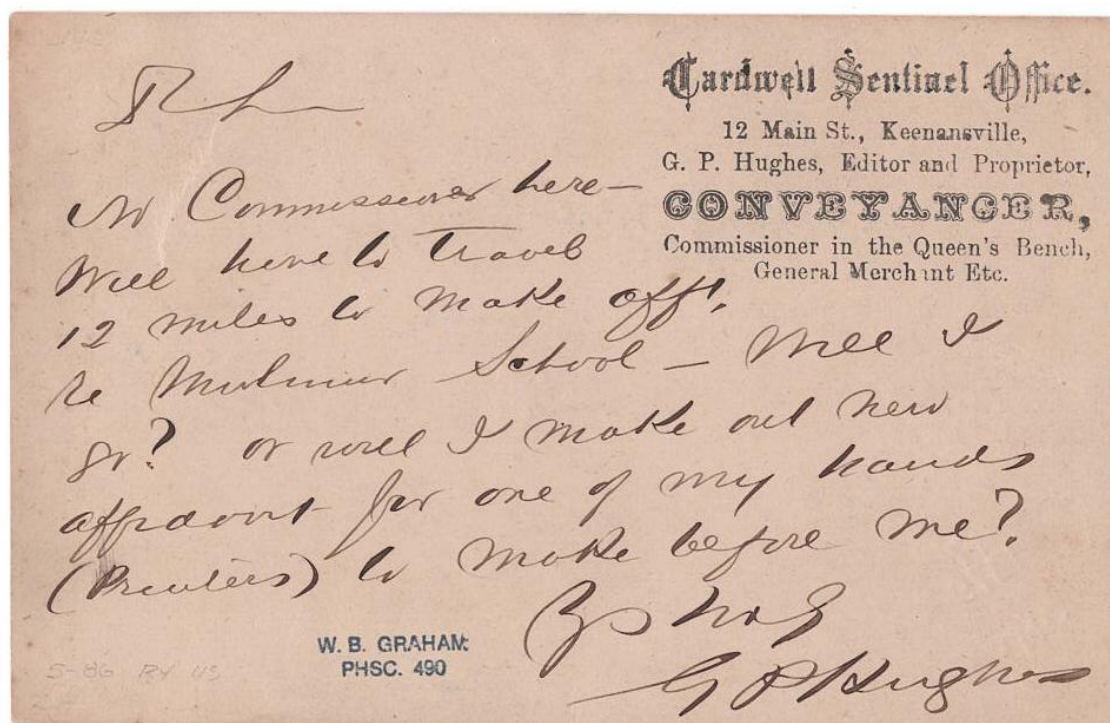 Cardwell Sentinel Office.
12 Main St., Keenansville,
G. P. Hughes, Editor and Proprietor,
CONVEYANCER,
Commissioner in the Queen's Bench,
General Merchant Etc.
No Commissioner here —
Will have to travel
12 miles to make afft.
re Mulmur School — Will I
go? or will I make out new
affidavit for one of my hands
(Printers) to make before me?
G P Hughes
W. B. GRAHAM
PHSC. 490